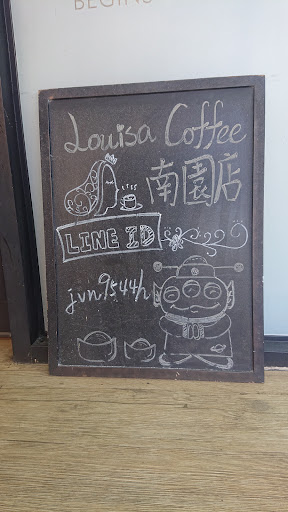 BEGINS
Louisa Coffee
南園店
LINE ID
jvn9544h